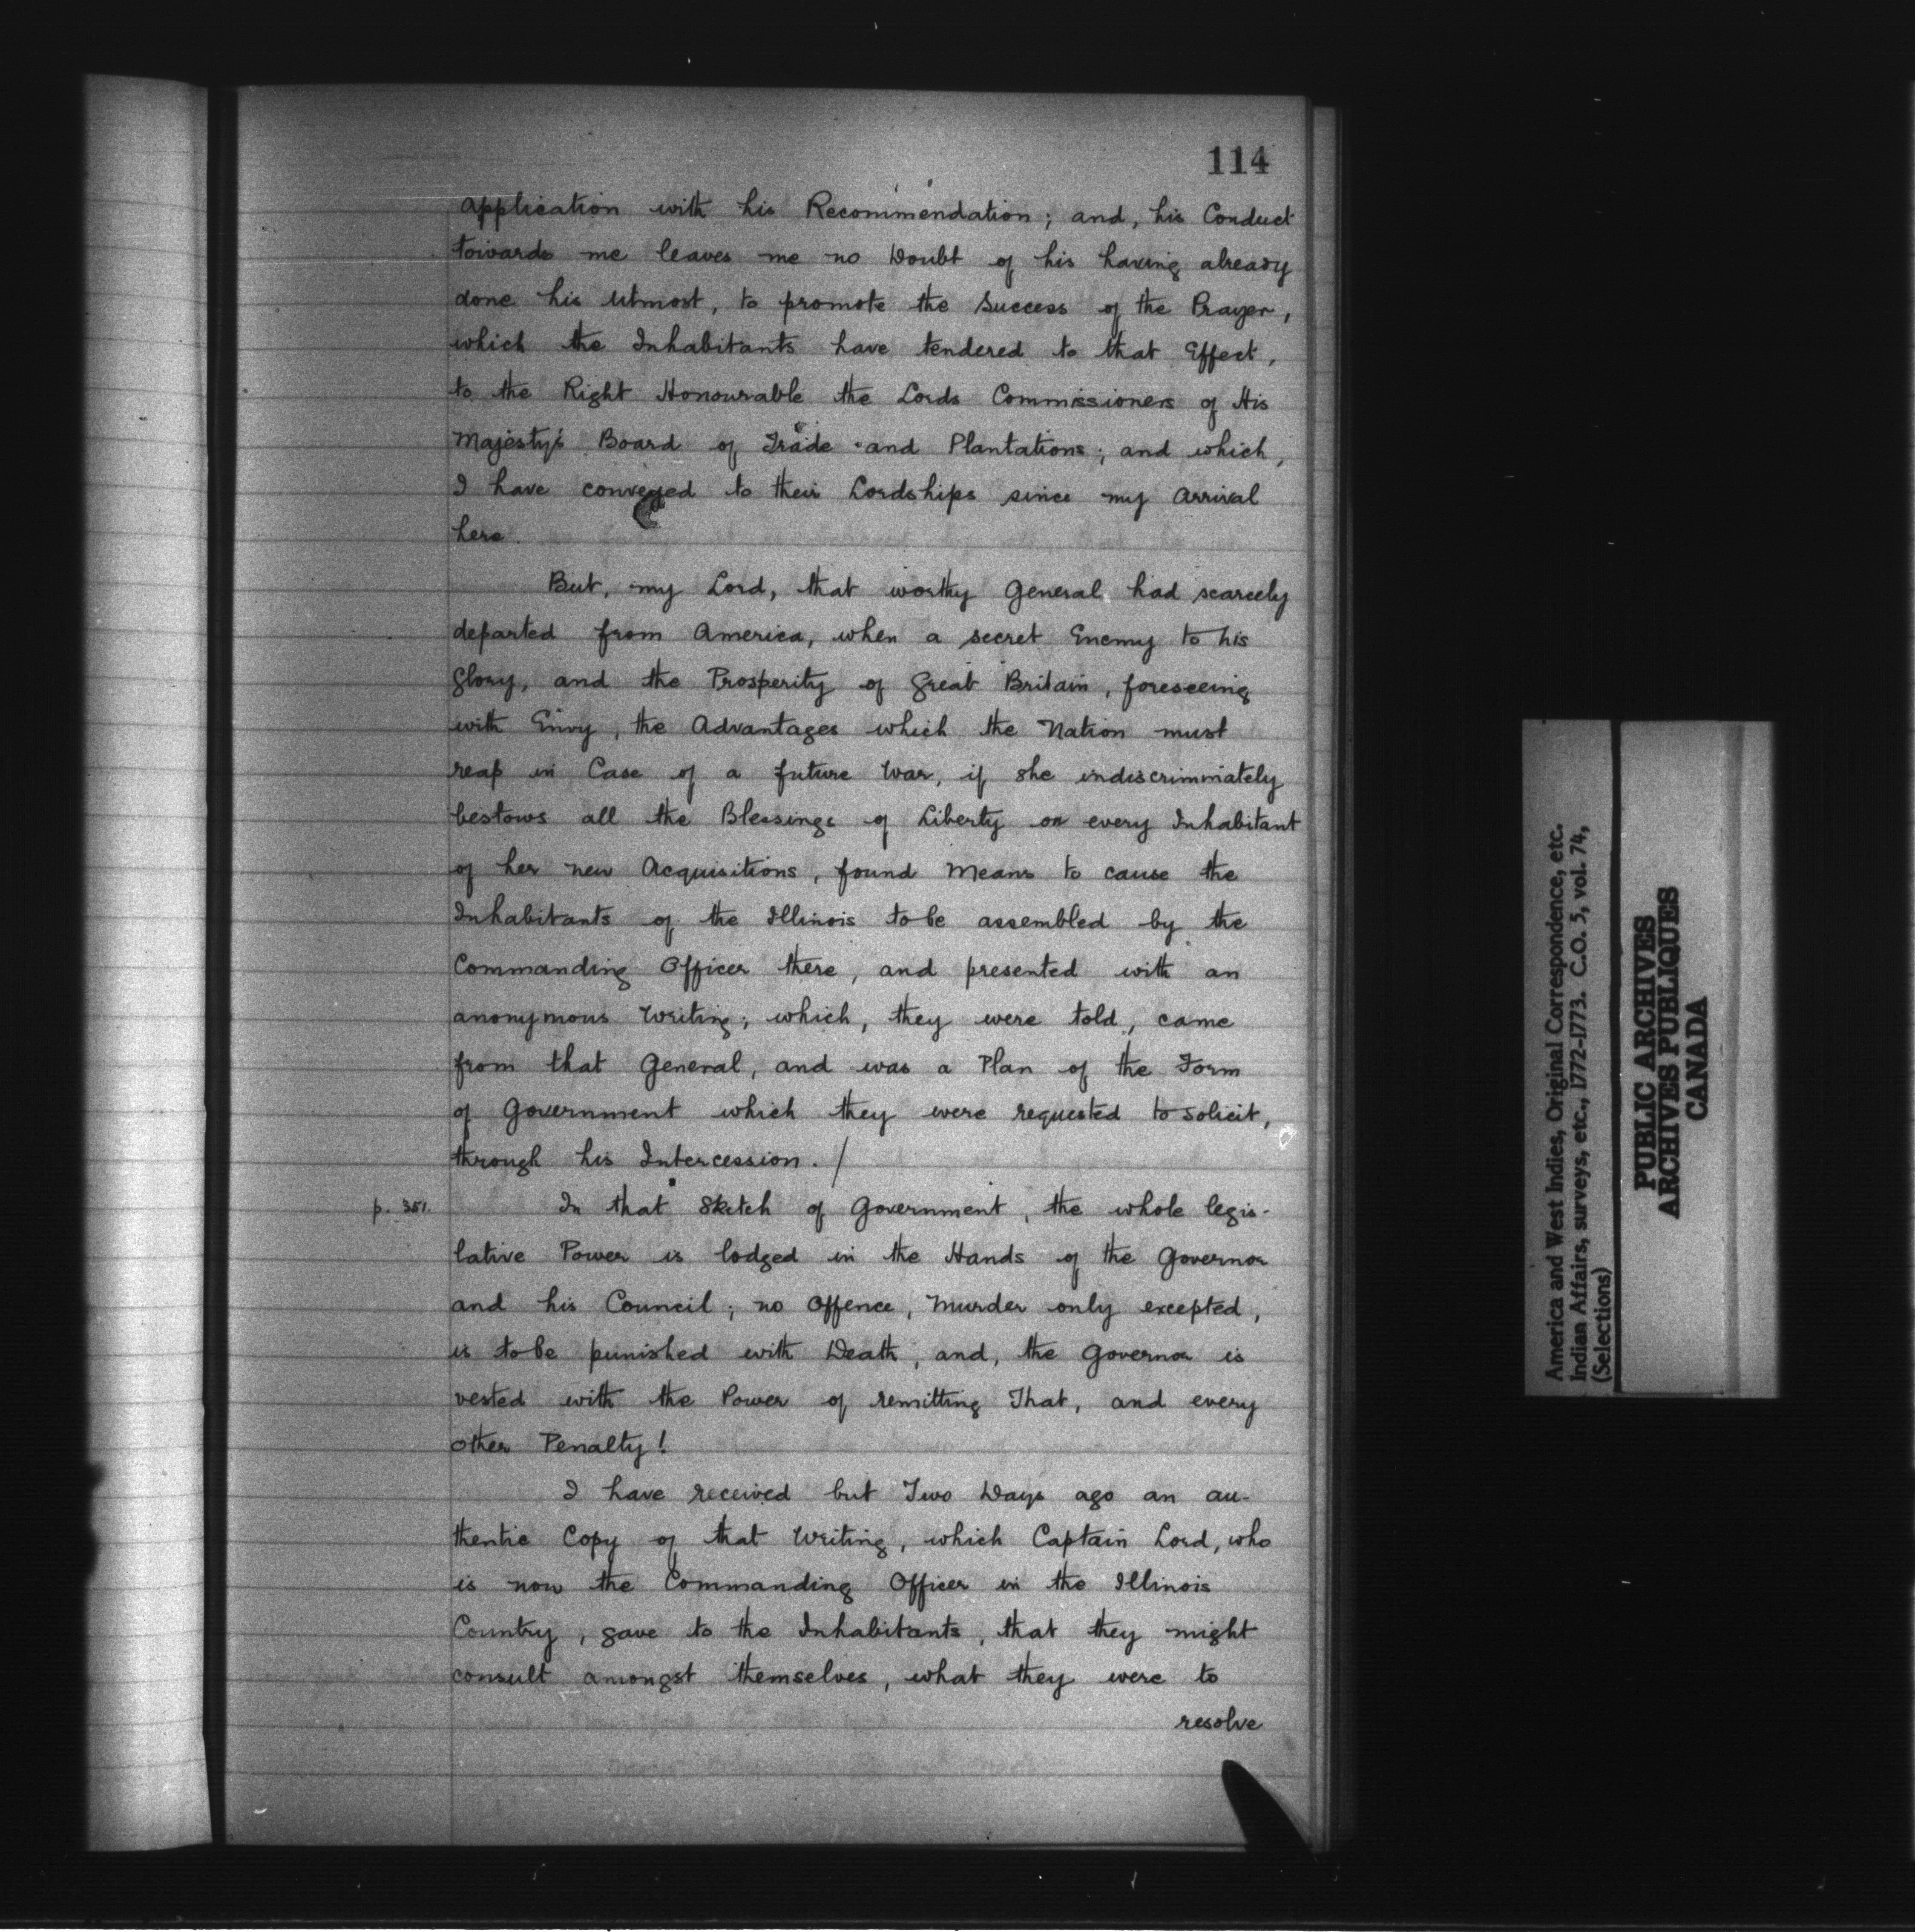 114
application with his Recommendation; and, his Conduct
towards me leaves me no Doubt of his having already
done his Utmost, to promote the Success of the Prayer,
which the Inhabitants have tendered to that Effect,
to the Right Honourable the Lords Commissioners of His
Majesty's Board of Trade and Plantations; and which,
I have conveyed to their Lordships since my Arrival
here.
But, my Lord, that worthy General had scarcely
departed from America, when a secret Enemy to his
Glory, and the Prosperity of Great Britain, foreseeing
with Envy, the Advantages which the Nation must
reap in Case of a future War, if she indiscriminately
bestows all the Blessings of Liberty on every Inhabitant
of her new Acquisitions, found Means to cause the
Inhabitants of the Illinois to be assembled by the
Commanding Officer there, and presented with an
anonymous Writing; which, they were told, came
from that General, and was a Plan of the Form
of Government which they were requested to solicit,
through his Intercession. /
p. 351.
In that Sketch of Government, the whole legis-
lative Power is lodged in the Hands of the Governor
and his Council; no Offence, Murder only excepted,
is to be punished with Death; and, the Governor is
vested with the Power of remitting That, and every
other Penalty!
I have received but Two Days ago an au-
thentic Copy of that Writing, which Captain Lord, who
is now the Commanding Officer in the Illinois
Country, gave to the Inhabitants, that they might
consult amongst themselves, what they were to
resolve
America and West Indies, Original Correspondence, etc.
Indian Affairs, surveys, etc., 1772-1773. C.O. 5, vol. 74,
(Selections)
PUBLIC ARCHIVES
ARCHIVES PUBLIQUES
CANADA